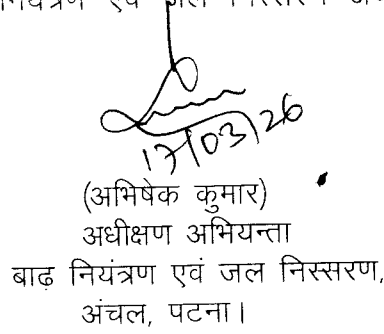 नियंत्रण एवं जल निस्सरण
17/03/26
(अभिषेक कुमार)
अधीक्षण अभियन्ता
बाढ़ नियंत्रण एवं जल निस्सरण,
अंचल, पटना।